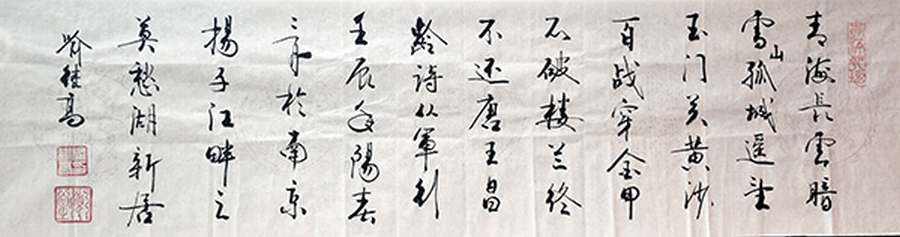 青海長雲暗
雪山孤城遥望
玉门关黄沙
百战穿金甲
不破楼兰终
不还唐王昌
龄诗从軍行
壬辰年陽春
於南京
揚子江畔之
莫愁湖新居
桂高